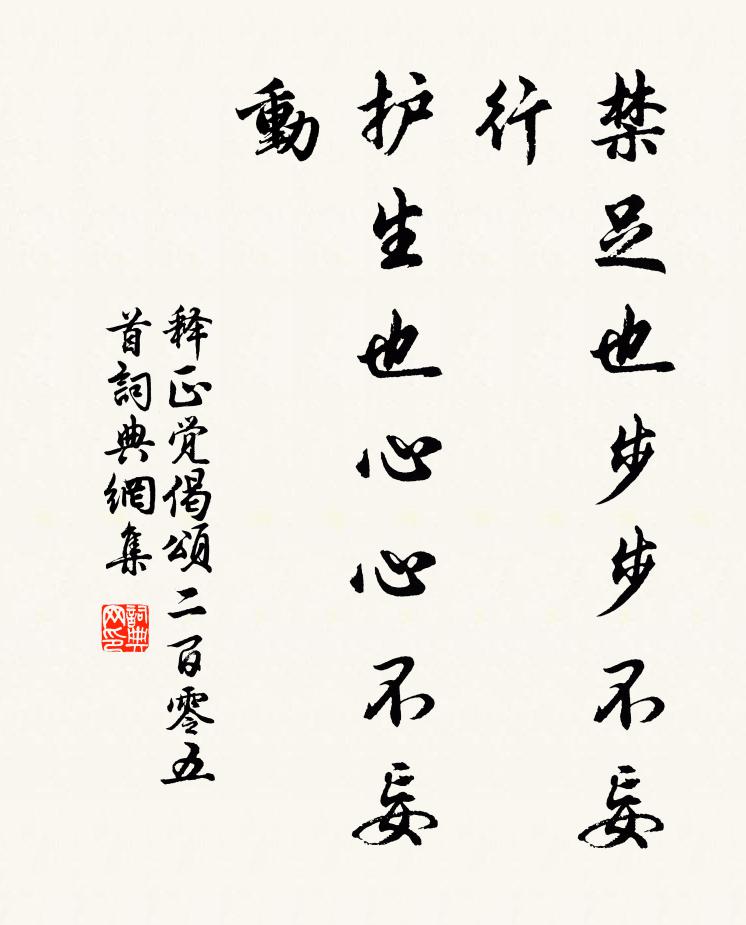 禁足也步步不妄
行
护生也心心不妄
動
释正觉偈頌二百零五
首詞典網集
詞典
网印